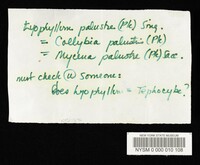 Lyophyllum palustre (Pk) Sing.
= Collybia palustris (Pk)
= Mycena palustre (Pk) Sacc.
must check (w) someone:
Does Lyophyllum = Tephrocybe?
NEW YORK STATE MUSEUM
NYSM 0 000 010 108